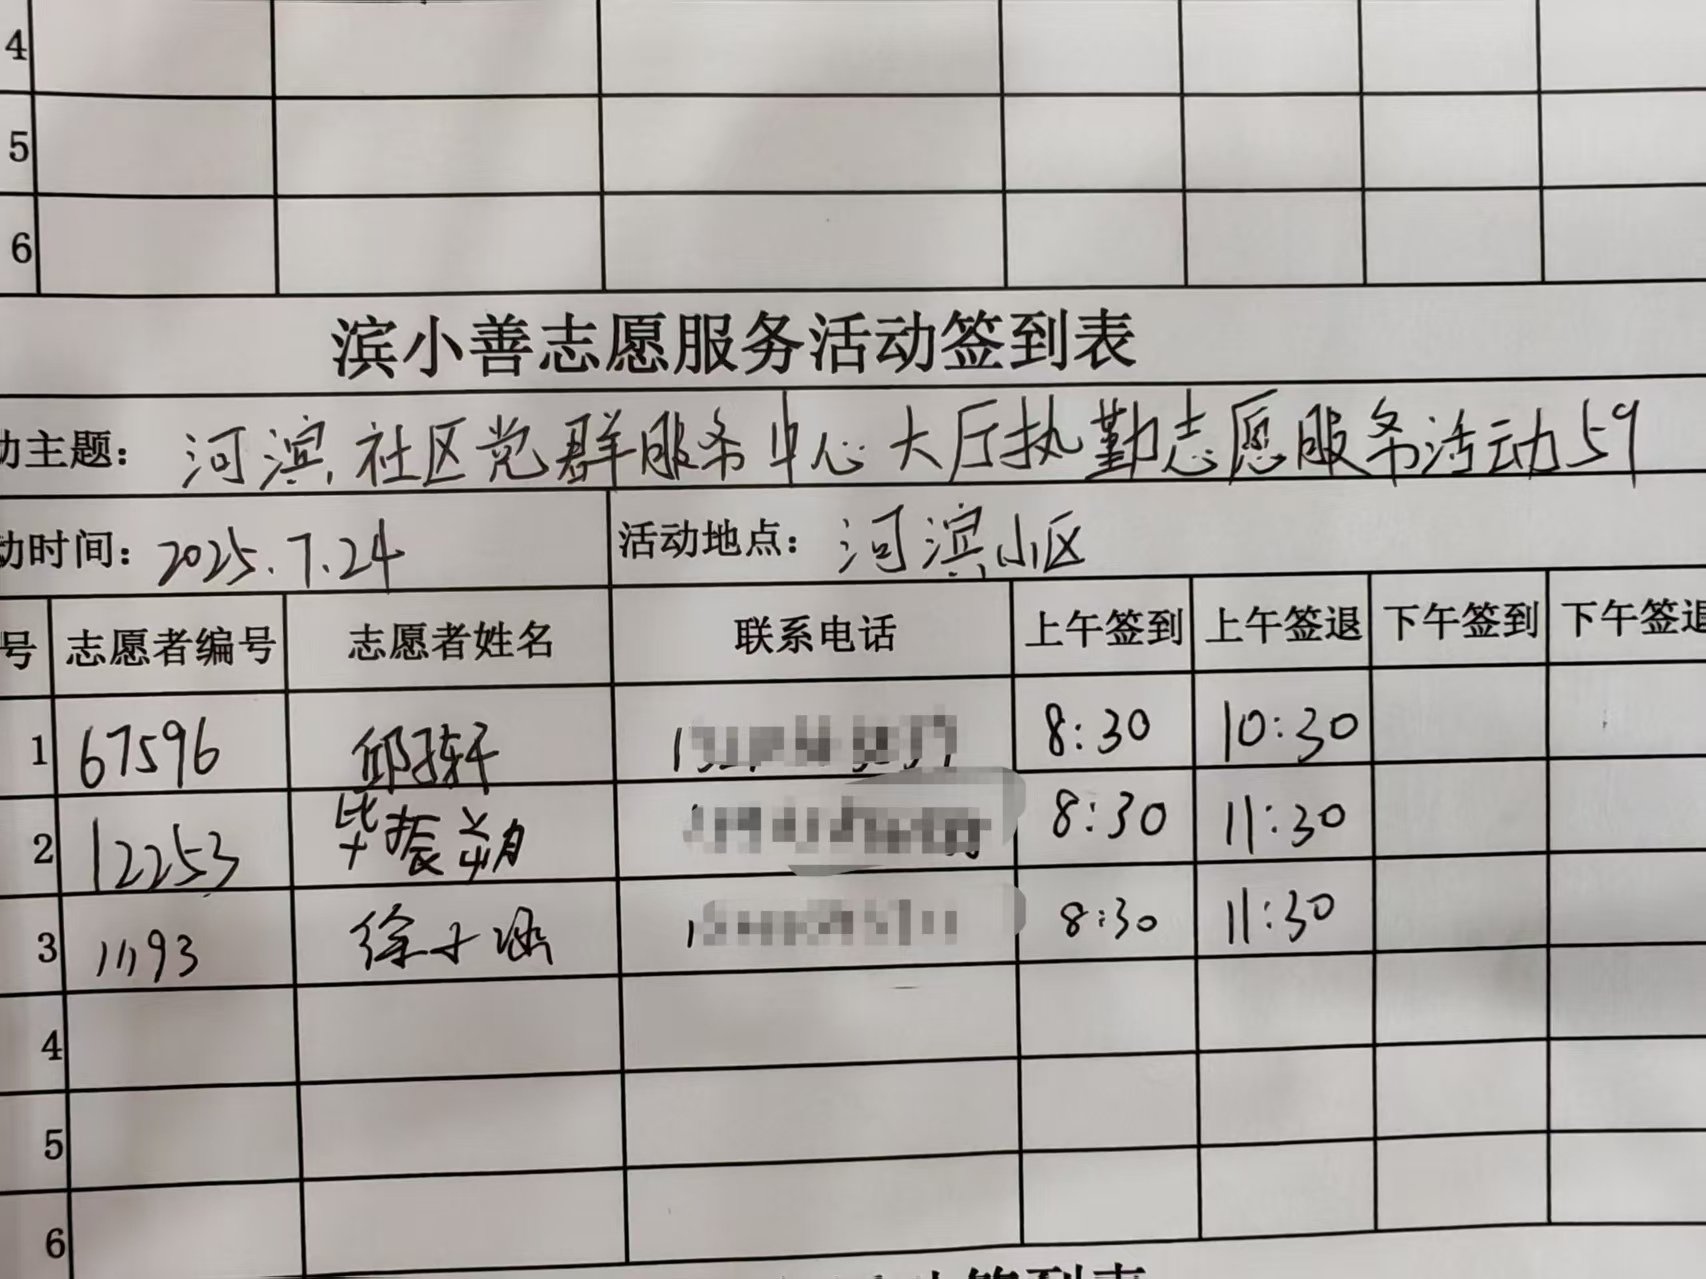 4
5
6
滨小善志愿服务活动签到表
动主题：河滨社区党群服务中心大厅执勤志愿服务活动59
动时间：2025.7.24 活动地点：河滨小区
号 志愿者编号 志愿者姓名 联系电话 上午签到 上午签退 下午签到 下午签退
1 67596 邱子轩 8:30 10:30
2 12253 毕振 8:30 11:30
3 11193 徐子涵 8:30 11:30
4
5
6